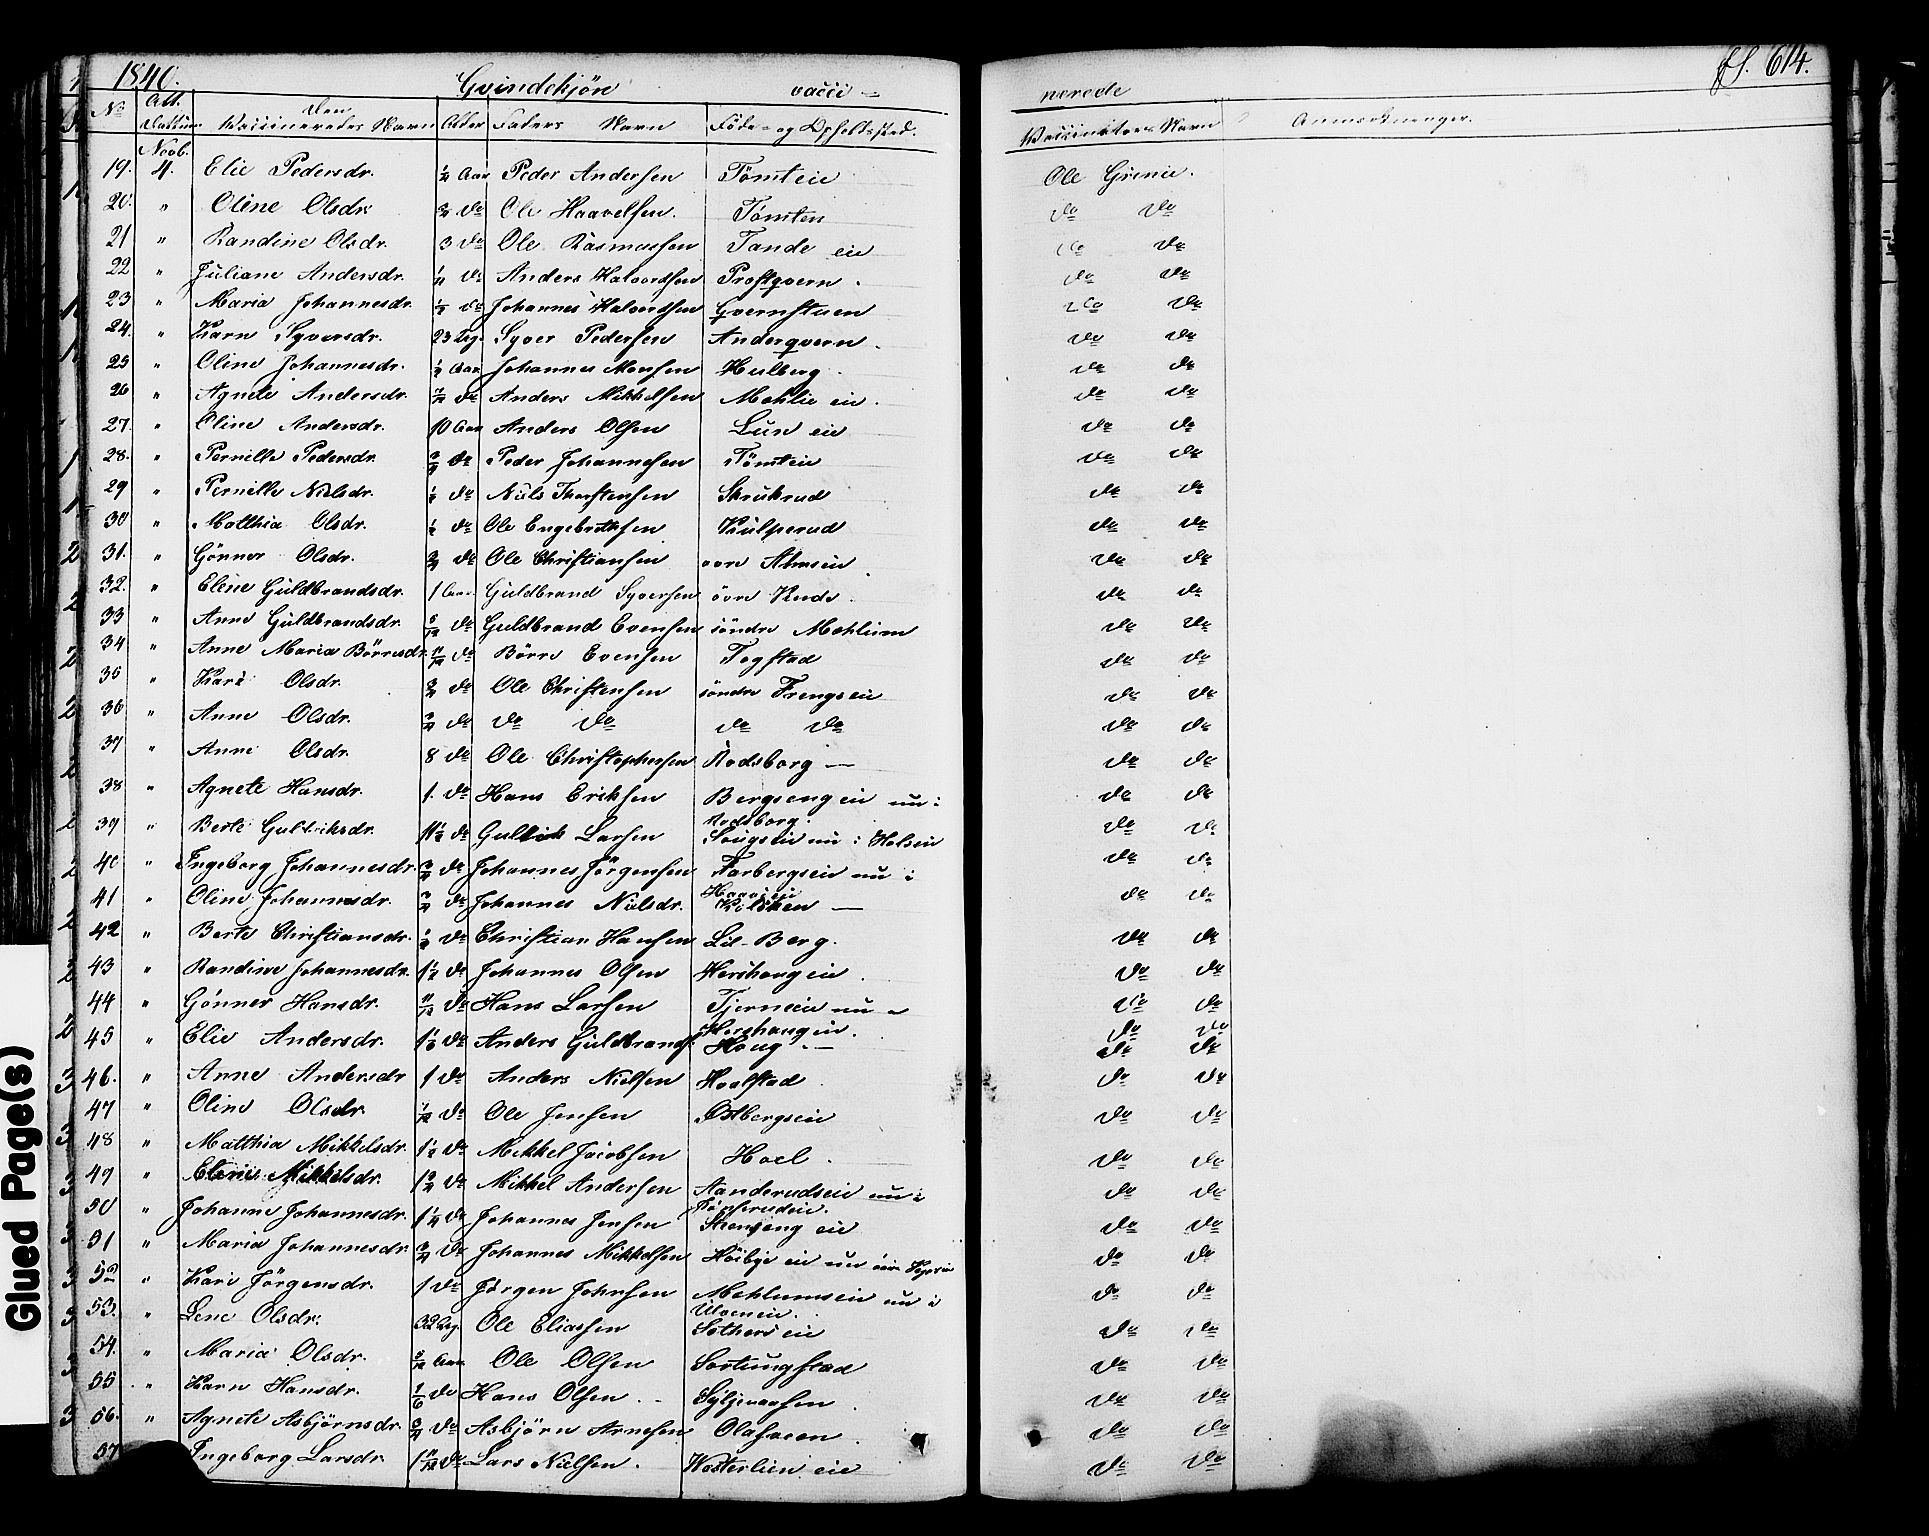 1840. Qvindekjön vacci-
nerede fS. 614.
No Att. Dattum Den Vaccineredes Navn Alder Faders Navn Föde- og Opholdssted.
Vaccinators Navn Anmærkninger.
Novb.
19. 4. Elie Pedersdr. 1/2 Aar Peder Andersen Tömteie Ole Grenie.
20. " Oline Olsdr. 3/4 do Ole Haavelsen. Tömten do do
21 " Randine Olsdr. 3 do Ole Rasmussen Tande eie do do
22 " Juliane Andersdr. do Anders Halvordsen Prostqvern. do do
23 " Maria Johannesdr. 1/2 do Johannes Halvordsen Qvernstuen do do
24. " Karn Syversdr. 23 Ug. Syver Pedersen Anderqvern. do do
25 " Oline Johannesdr. Aar Johannes Monsen Hulberg. do do
26 " Agnete Andersdr. do Anders Mikkelsen Mæhlie eie. do do
27. " Oline Andersdr. 10 Aar Anders Olsen Lun eie do do
28. " Pernille Pedersdr. 3/4 do Peder Johannesen Tömteie do do
29 " Pernille Nielsdr. do Niels Thorstensen Skrukrud do do
30 " Matthia Olsdr. do Ole Engebrethsen Kulperud do do
31. " Gönner Olsdr. 3/4 do Ole Christiansen övre Almseie do do
32. " Eline Guldbrandsdr. 1 Aar Guldbrand Syversen övre Kinde. do do
33 " Anne Guldbrandsdr. 5/12 do Guldbrand Evensen söndre Mæhlum do do
34 " Anne Maria Börresdr. 11/12 do Börre Evensen Togstad do do
35 " Kari Olsdr. 3/4 do Ole Christensen söndre Frengseie do do
36 " Anne Olsdr. 3/4 do do do do do do do
37 " Anne Olsdr. 8 do Ole Christophersen Rodsborg — do do
38 " Agnete Hansdr. 1. do Hans Eriksen Bergsengeie nu i do do
Rodsborg.
39 " Berte Gulliksdr. 11 1/2 do Gullik Larsen Sougseie nu i Holseie do do
40 " Ingeborg Johannesdr. 3/4 do Johannes Jörgensen Farbergseie nu i do do
41 " Oline Johannesdr. 3/4 do Johannes Nielsdr. — do do
42 " Berte Christiansdr. do Christian Hansen Lil-Berg. do do
43 " Randine Johannesdr. do Johannes Olsen Hershougeie. do do
44 " Gönner Hansdr. 11/12 do Hans Larsen Tjerneeie nu i do do
Hershaugeie. do do
45 " Elie Andersdr. do Anders Guldbrands. Houg — do do
46. " Anne Andersdr 1 do Anders Nielsen Hoelstad do do
47 " Oline Olsdr. do Ole Jensen Östbergseie do do
48 " Matthia Mikkelsdr. 1 1/2 do Mikkel Jacobsen Hoel. do do
49 " Mikkelsdr. 1 3/4 do Mikkel Andersen Aanderudseie nu i do do
50 " Johanne Johannesdr. 1 1/4 do Johannes Jensen Stenseng eie do do
51 " Maria Johannesdr. 3/4 do Johannes Mikkelsen Höibye eie nu do do
52 " Kari Jörgensdr. 1 do Jörgen Johnsen Mæhlumseie nu i do do
Ulveneie.
53. " Lene Olsdr. 32 Ug. Ole Eliassen eie do do
54. " Maria Olsdr. Aar Ole Olsen Sostungstad do do
55 " Karn Hansdr. 1/6 do Hans Olsen. do do
56. " Agnete Asbjörnsdr. 3/4 do Asbjörn Arnesen Olasveen. do do
57 Ingeborg Larsdr. 1 do Lars Nielsen. Westerlien eie do do
Glued Page(s)